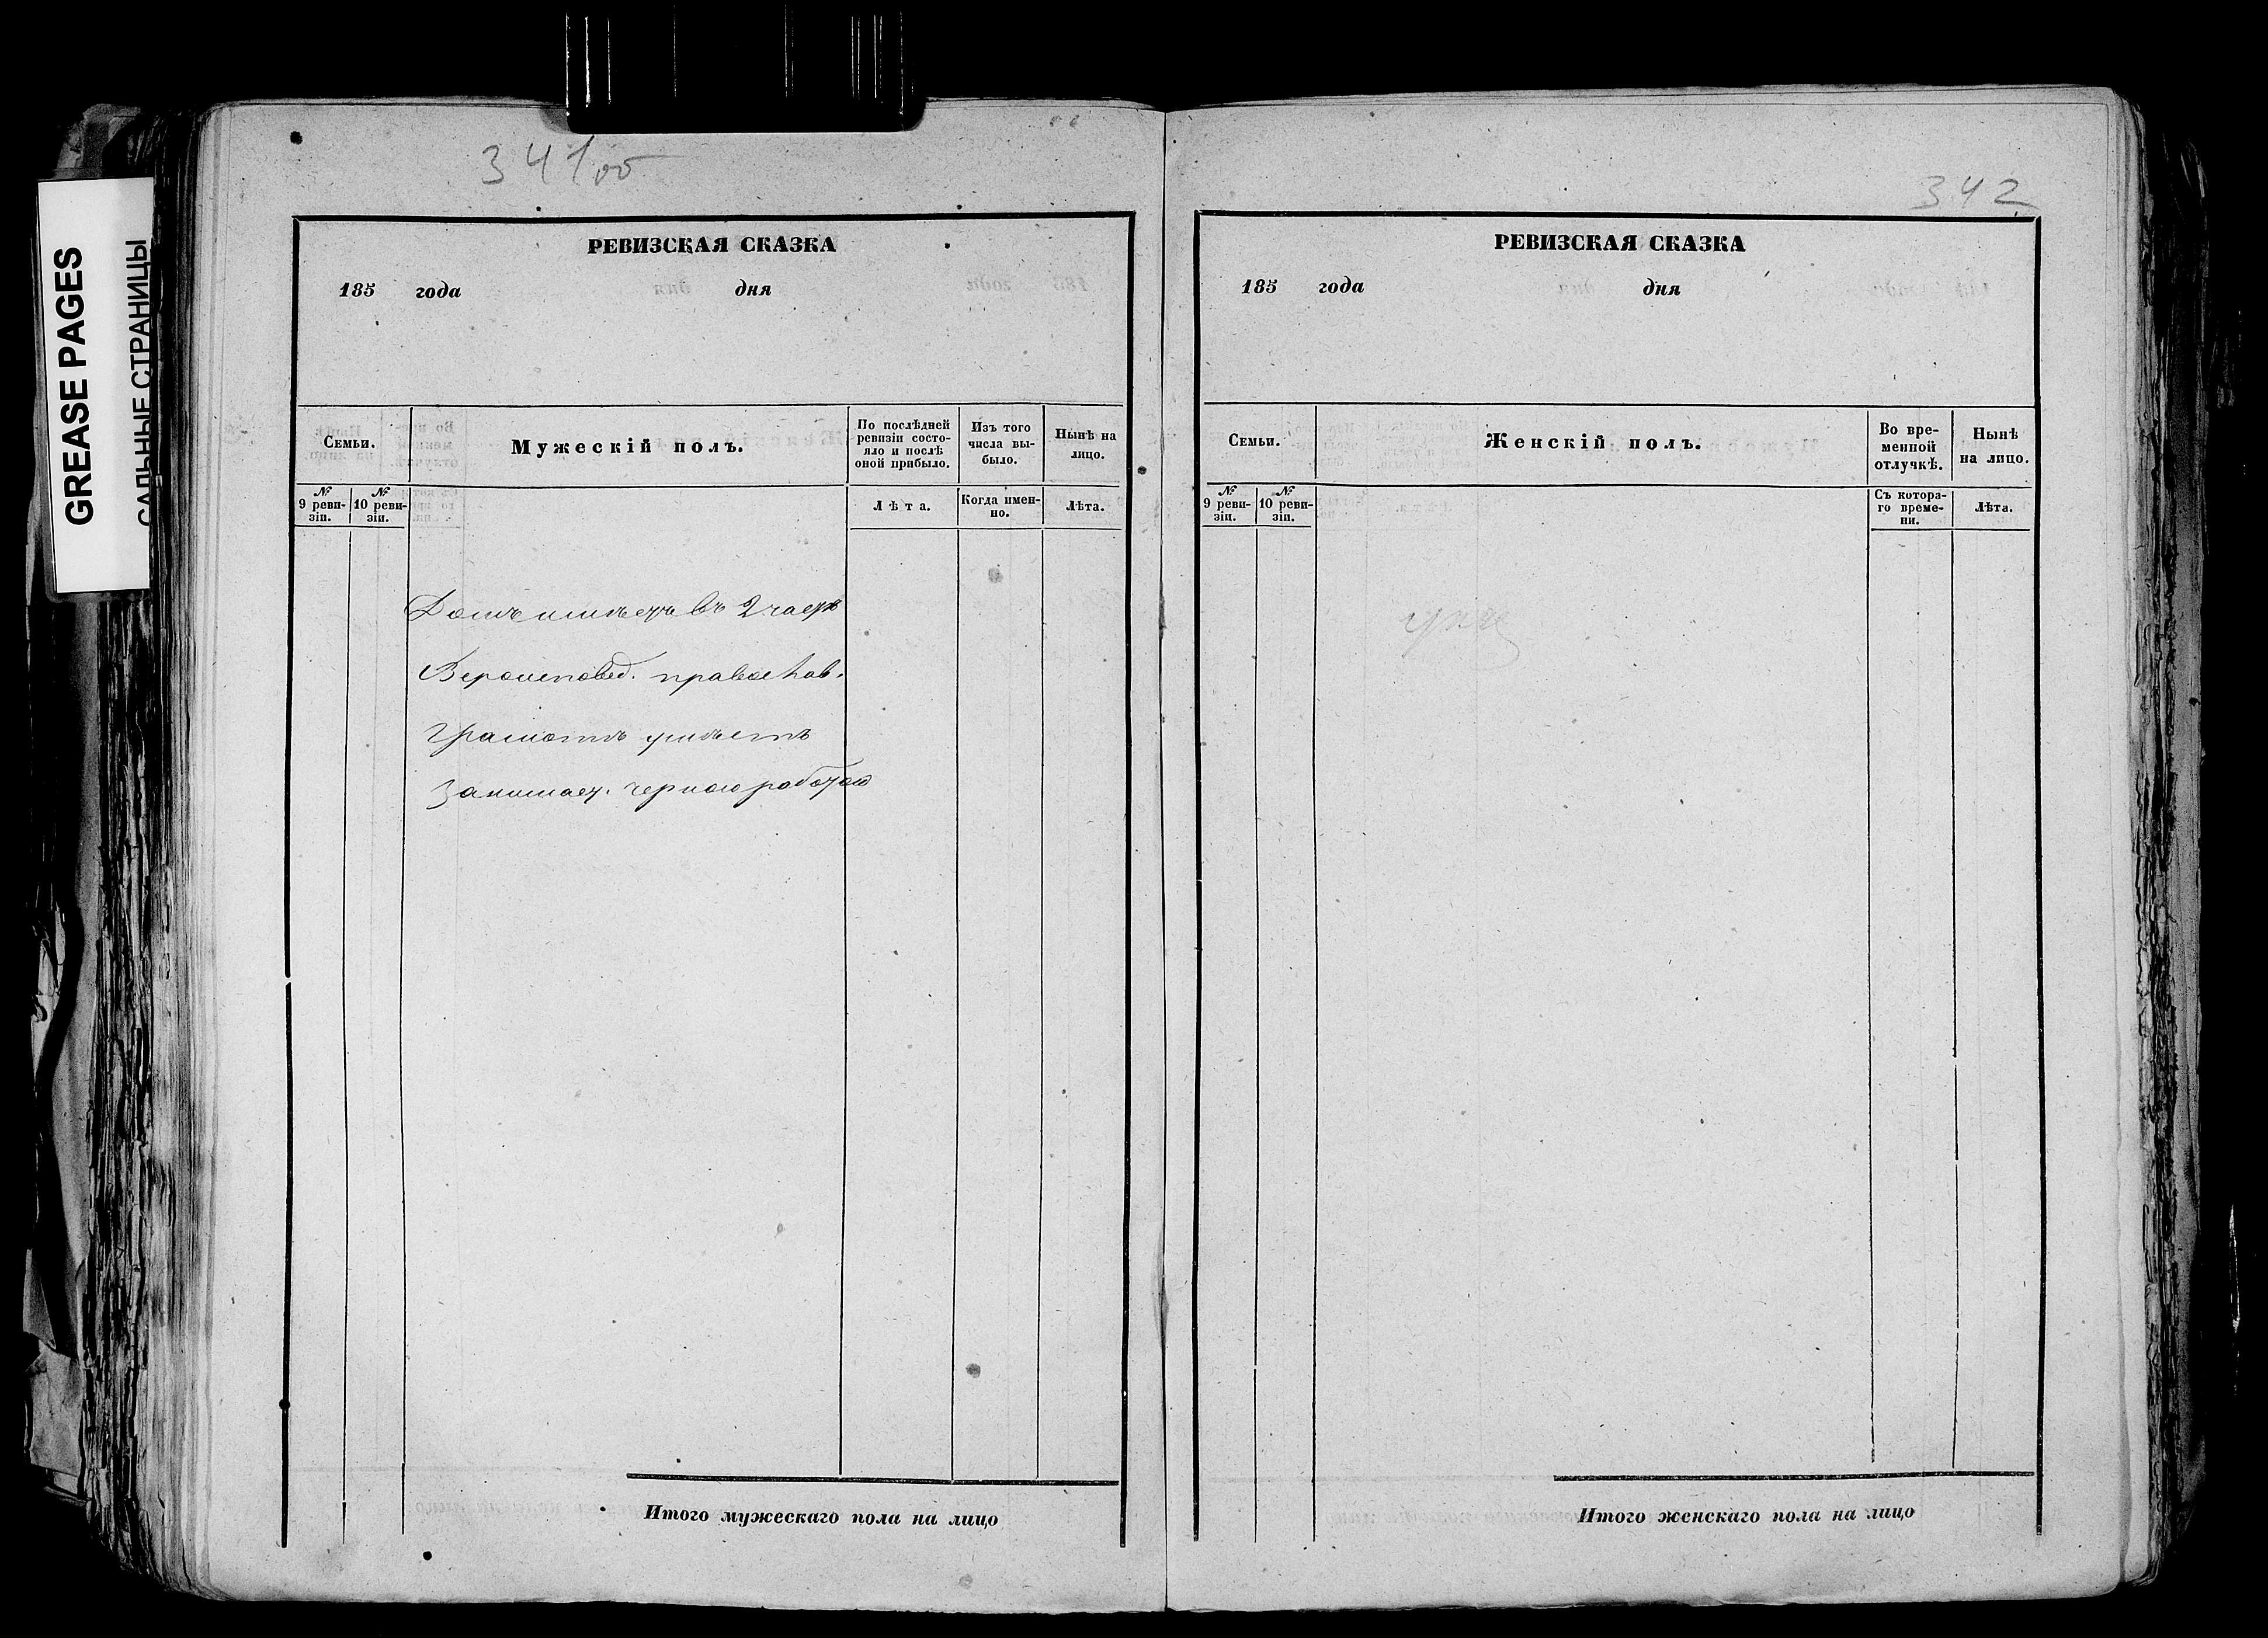 GREASE PAGES
САЛЬНЫЕ СТРАНИЦЫ
341об
РЕВИЗСКАЯ СКАЗКА
185 года дня
Семьи.
Мужескій полъ.
По послѣдней
ревизіи состо-
яло и послѣ
оной прибыло.
Изъ того
числа вы-
было.
Нынѣ на
лицо.
№
9 реви-
зіи.
№
10 реви-
зіи.
Лѣта.
Когда имен-
но.
Лѣта.
Домъ имѣетъ въ 2 части
Вероисповед. православ.
Грамотѣ умѣетъ
Занимает. черною работою
Итого мужескаго пола на лицо
342
РЕВИЗСКАЯ СКАЗКА
185 года дня
Семьи.
Женскій полъ.
Во вре-
менной
отлучкѣ.
Нынѣ
на лицо.
№
9 реви-
зіи.
№
10 реви-
зіи.
Съ котора-
го време-
ни.
Лѣта.
Итого женскаго пола на лицо